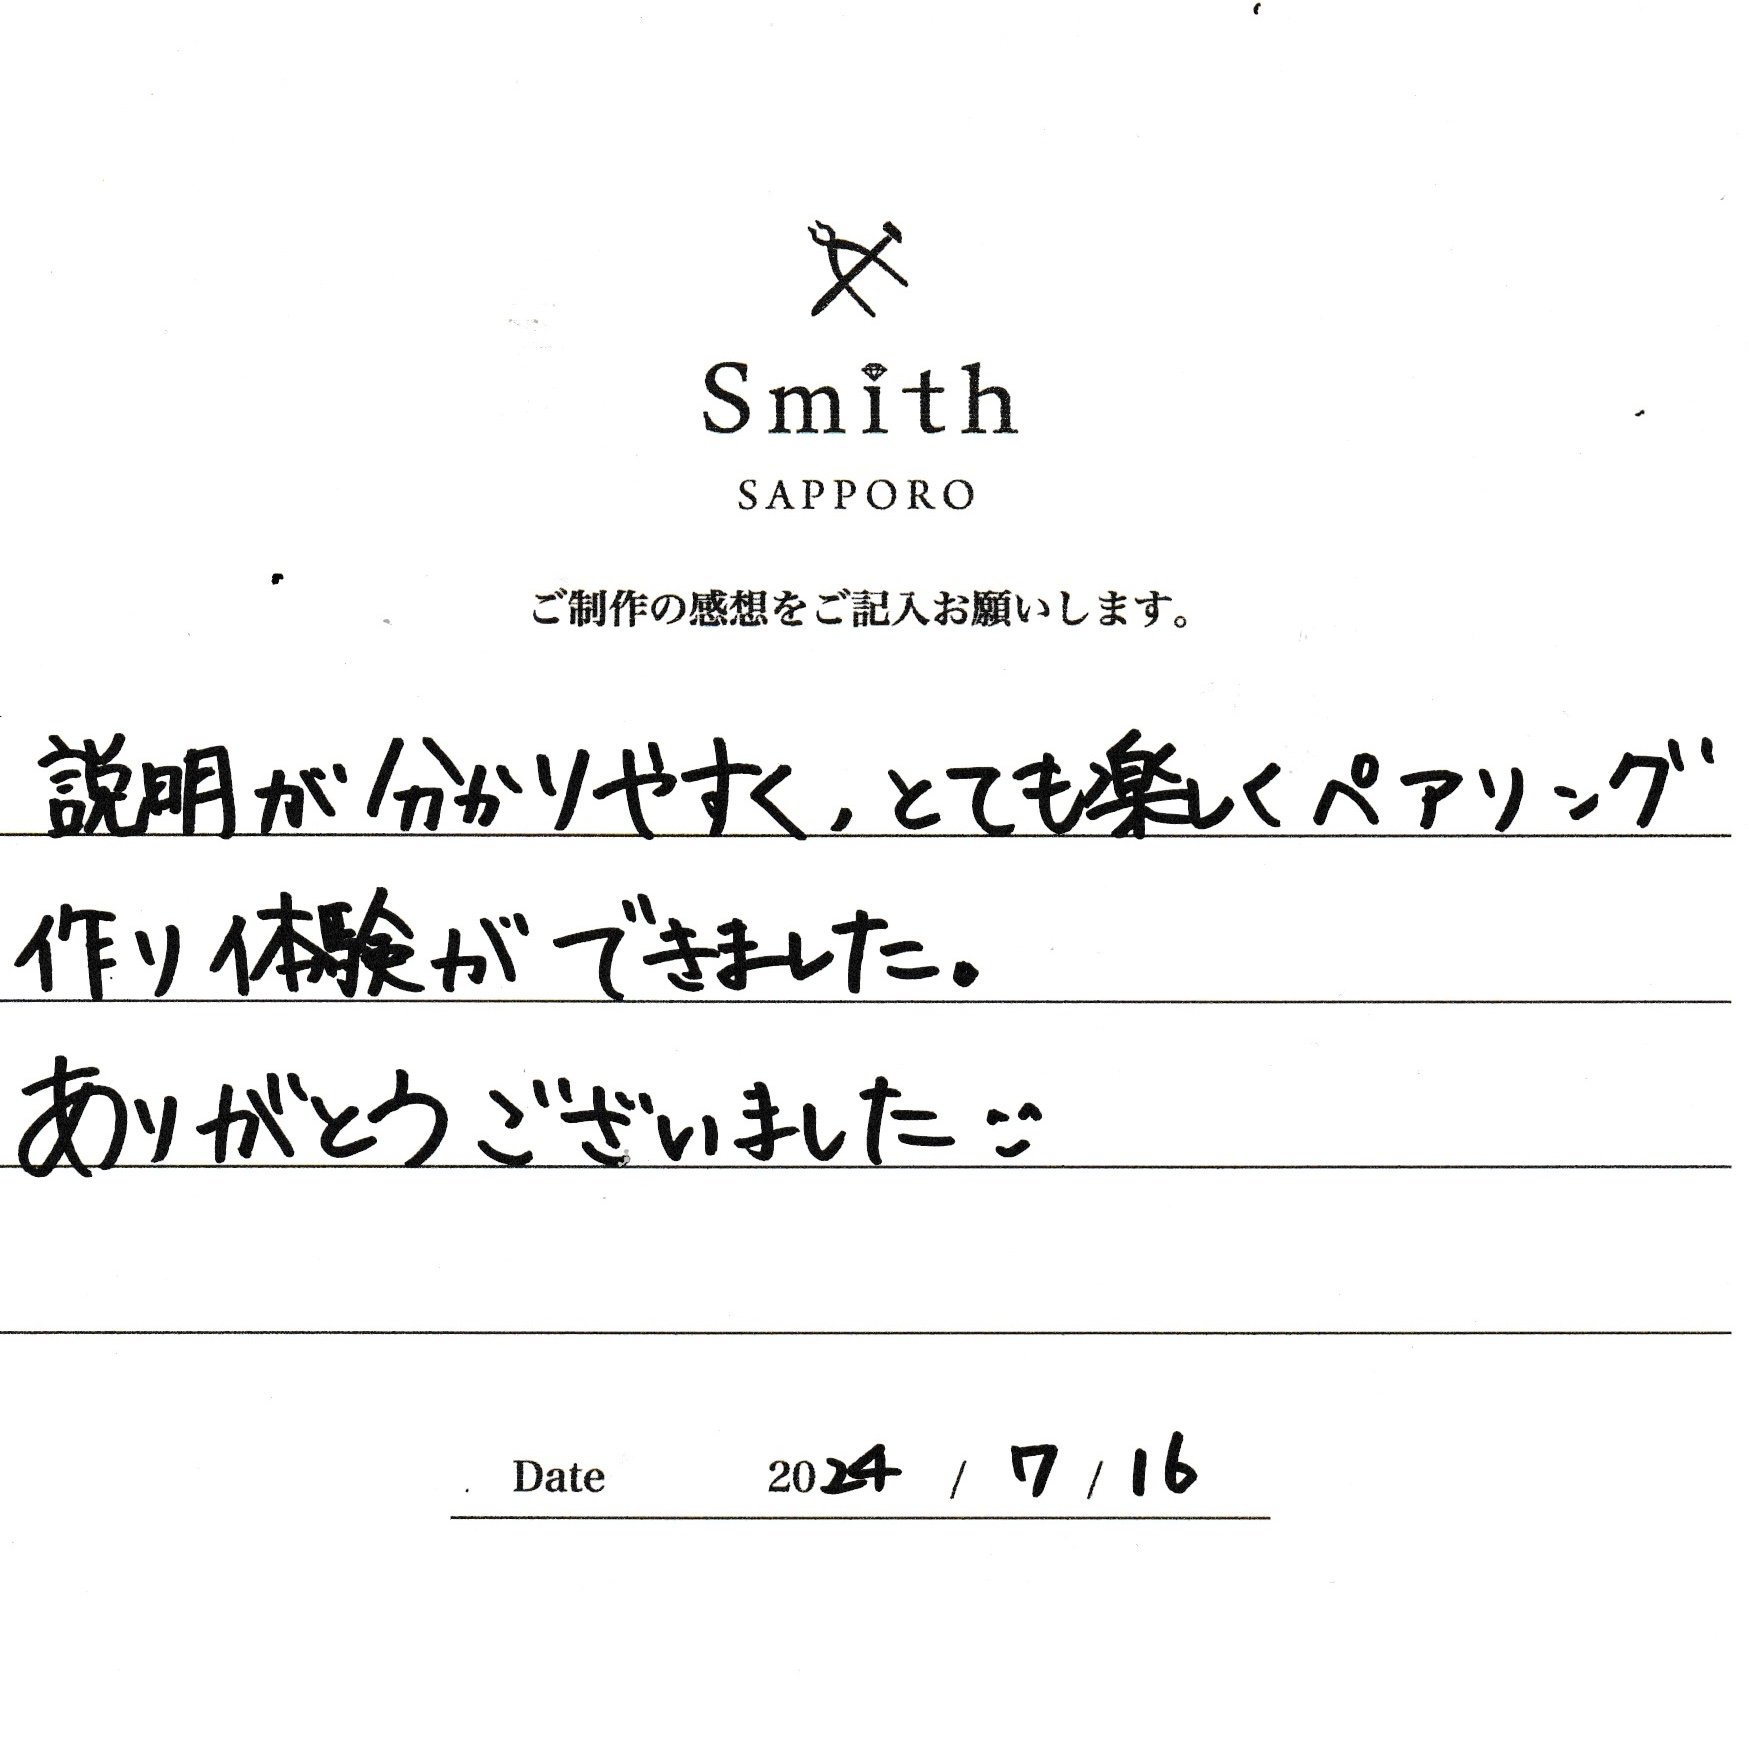 Smith
SAPPORO
ご制作の感想をご記入お願いします。
説明が分かりやすく,とても楽しくペアリング
作り体験ができました。
ありがとうございました
Date 2024 / 7 / 16